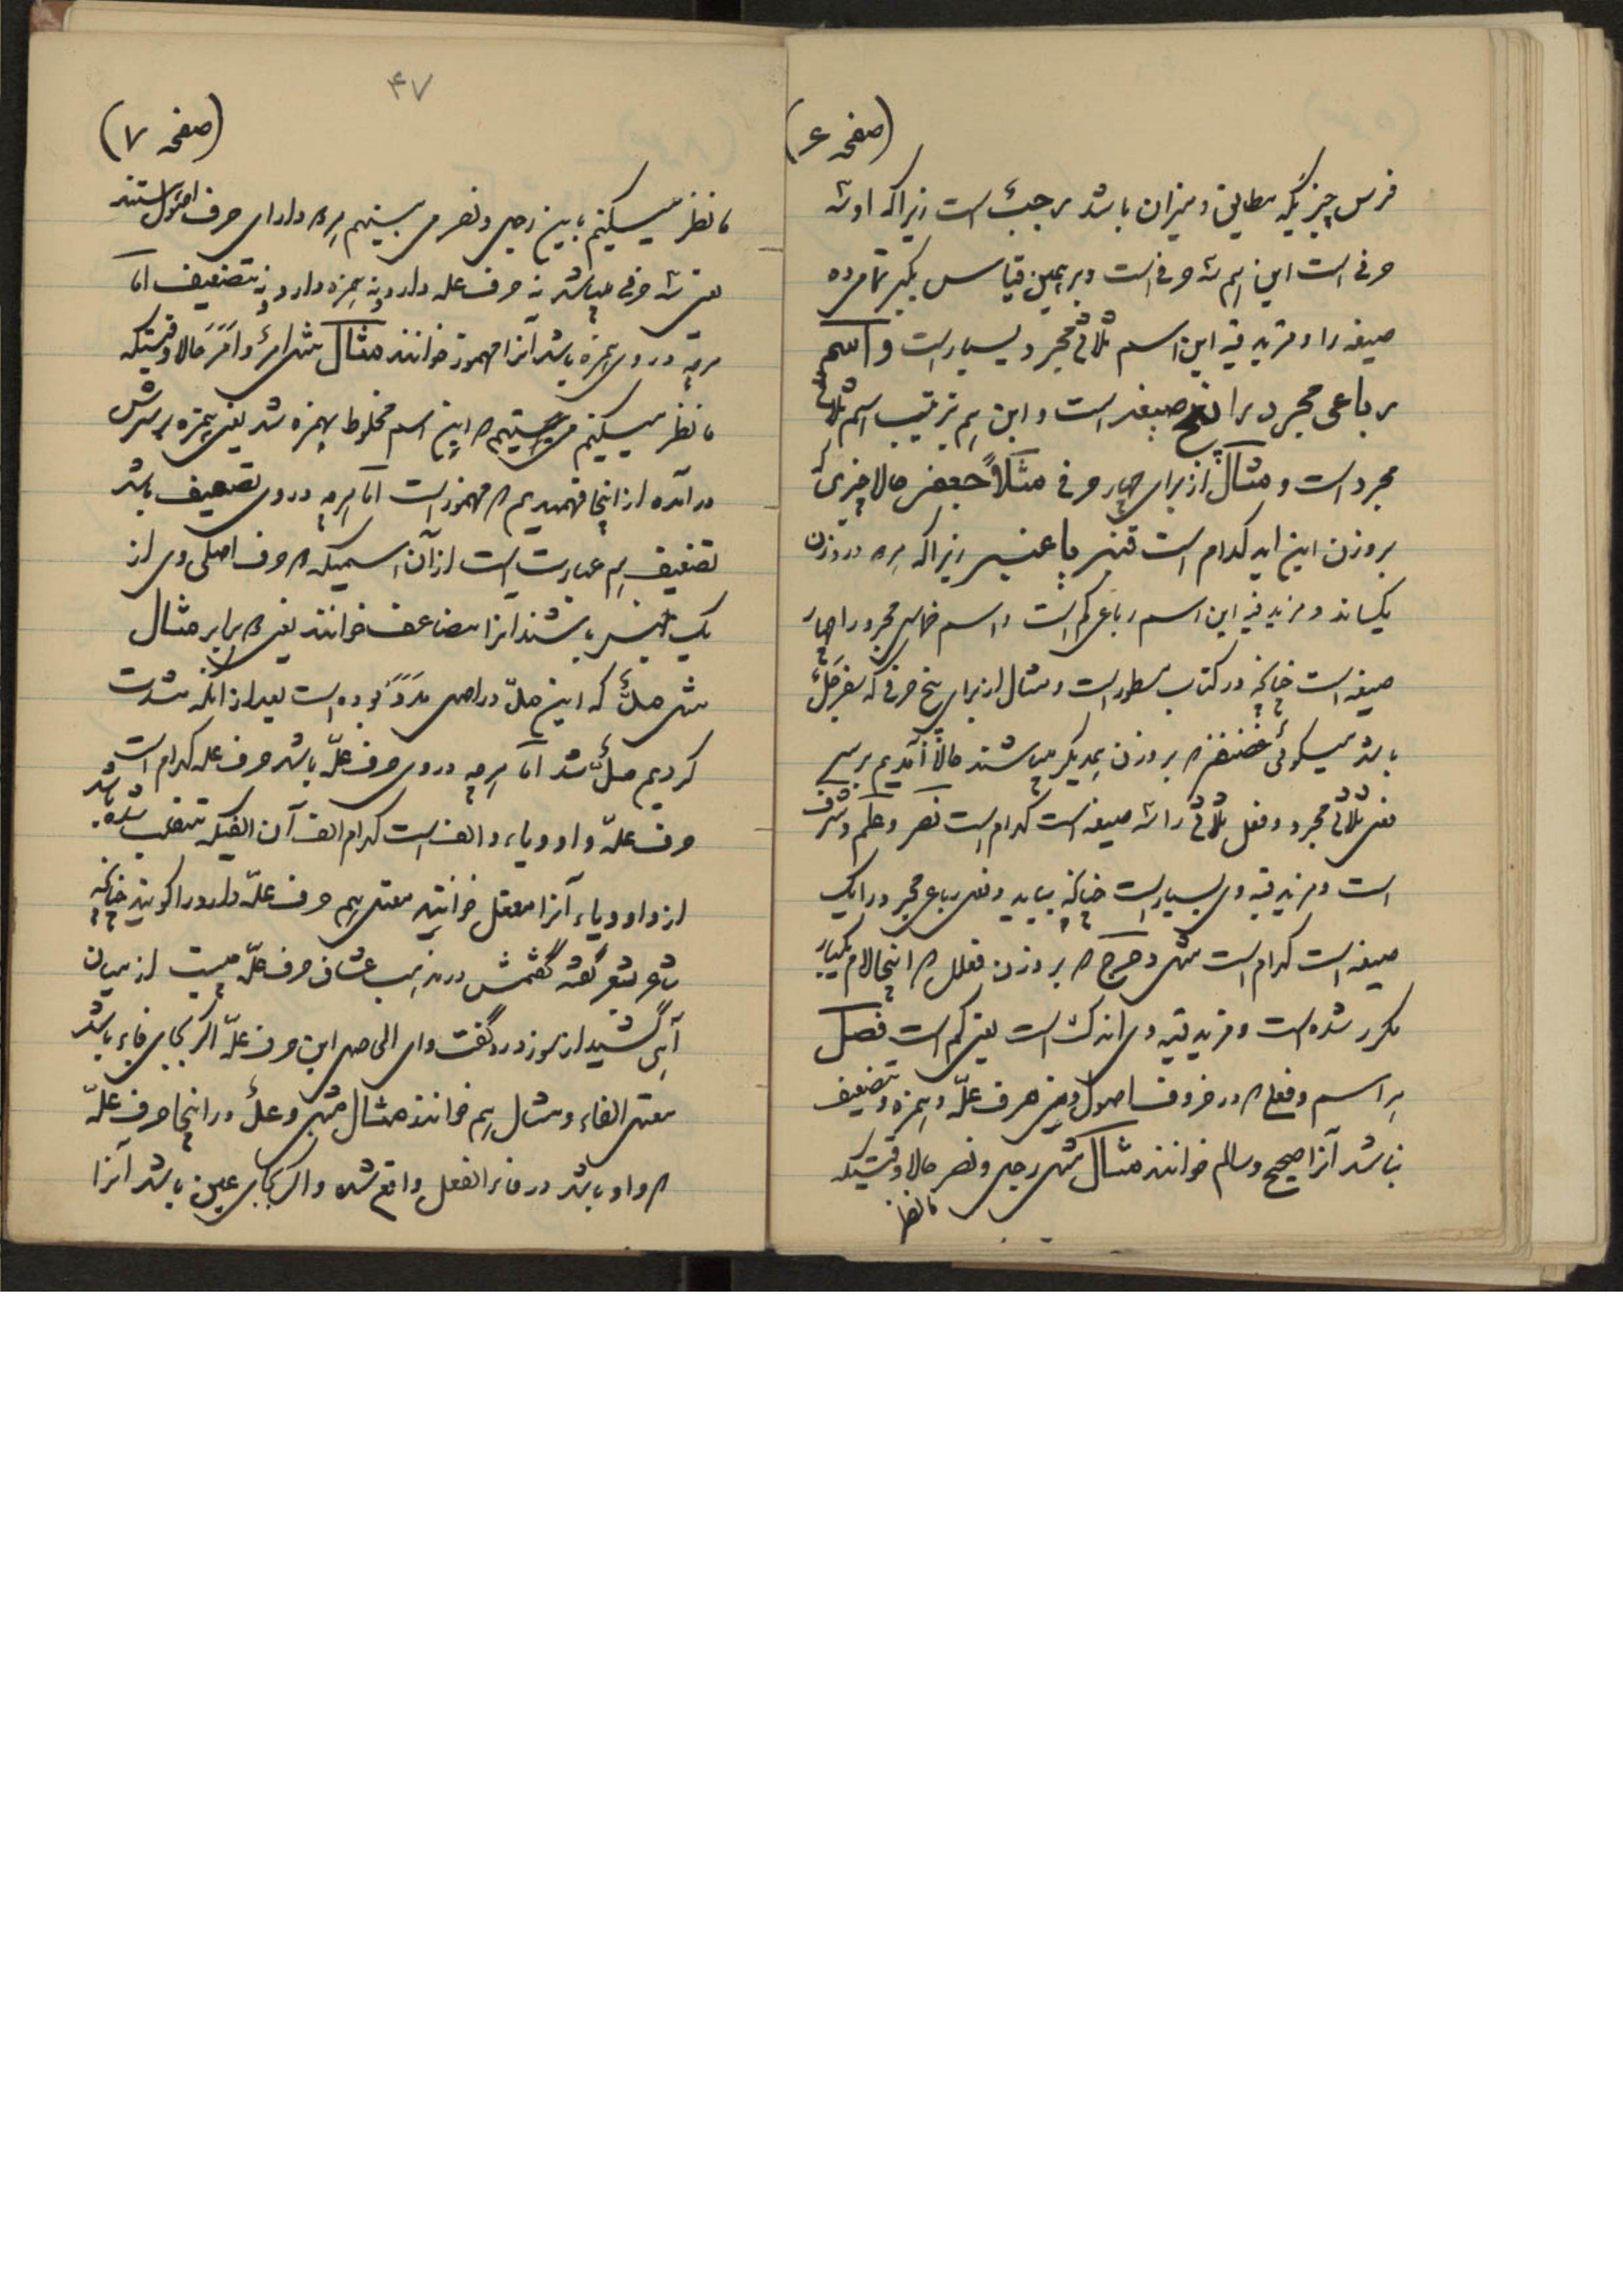 (صفحه ۶)
فرس چیزیکه مطابق و میزان باشد رجب است زیرا که او سه
حرفی است این هم سه حرفی است و بر همین قیاس بگیر تا مرده
صیغه را و مزید فیه این اسم ثلاثی مجرد بسیار است و اسم
رباعی مجرد را پنج صیغه است و این هم ترتیب اسم ثلاثی
مجرد است و مثال از برای چهار حرفی مثلاً جعفر حالا چیزی که
بر وزن این اید کدام است قنبر یا عنبر زیرا که هر ۲ در وزن
یکیاند و مزید فیه این اسم رباعی کم است و اسم خماسی مجرد را چهار
صیغه است چنانچه در کتاب مسطور است و مثال از برای پنج حرفی که سفرجل
باشد میگوئی غضنفر که بر وزن همدیگر میباشند حالا آمدیم بر سر
فعل ثلاثی مجرد و فعل ثلاثی را سه صیغه است کدام است نصر و علم و شرف
است و مزید فیه وی بسیار است چنانچه بیاید و فعل رباعی مجرد را یک
صیغه است کدام است مثل دحرج که بر وزن فعلل که اینجا لام یکبار
مکرر شده است و مزید فیه وی اندک است یعنی کم است فصل
هر اسم و فعل که در حروف اصول وی حرف علّه و همزه و تضعیف
نباشد آنرا صحیح و سالم خوانند مثال مثل رجل و نصر حالا وقتیکه
ما نظر
۴۷
(صفحه ۷)
ما نظر میکنیم باین رجل و نصر می بینیم هر ۲ دارای حرف اصول هستند
یعنی سه حرفی میباشد نه حرف علّه دارد و نه همزه دارد و نه تضعیف اما
هر چه در وی همزه باشد آنرا مهموز خوانند مثال مثل امرٌ و اَمَرَ حالا وقتیکه
ما نظر میکنیم که این اسم مخلوط بهمزه شد یعنی همزه بر سرش
در آمده از اینجا فهمیدیم که مهموز است اما هر چه در وی تضعیف باشد
تضعیف هم عبارت است از آن اسمیکه ۲ حرف اصلی وی از
یک جنس باشند آنرا مضاعف خوانند یعنی ۲ برابر مثال
مثل مدٌّ که این مدّ در اصل مَدَدَ بوده است بعد از آنکه مشدد
کردیم مدٌّ شد اما هر چه در وی حرف علّه باشد حرف علّه کدام است
حرف علّه واو و یاء و الف است کدام الف آن الفیکه منقلب شده باشد
از واو و یاء آنرا معتل خوانند معتل هم حرف علّه دارد را گویند چنانچه
شاعر شعر گفته گفتمش در مذهب عشاق حرف علّه چیست از میان
آهی کشید از سوز درد گفت وای الی اصل این حرف علّه اگر بجای فاء باشد
معتل الفاء و مثال هم خوانند مثال مثل وعدٌ در اینجا حرف علّه
که واو باشد در فاء الفعل واقع شده و اگر بجای عین باشد آنرا